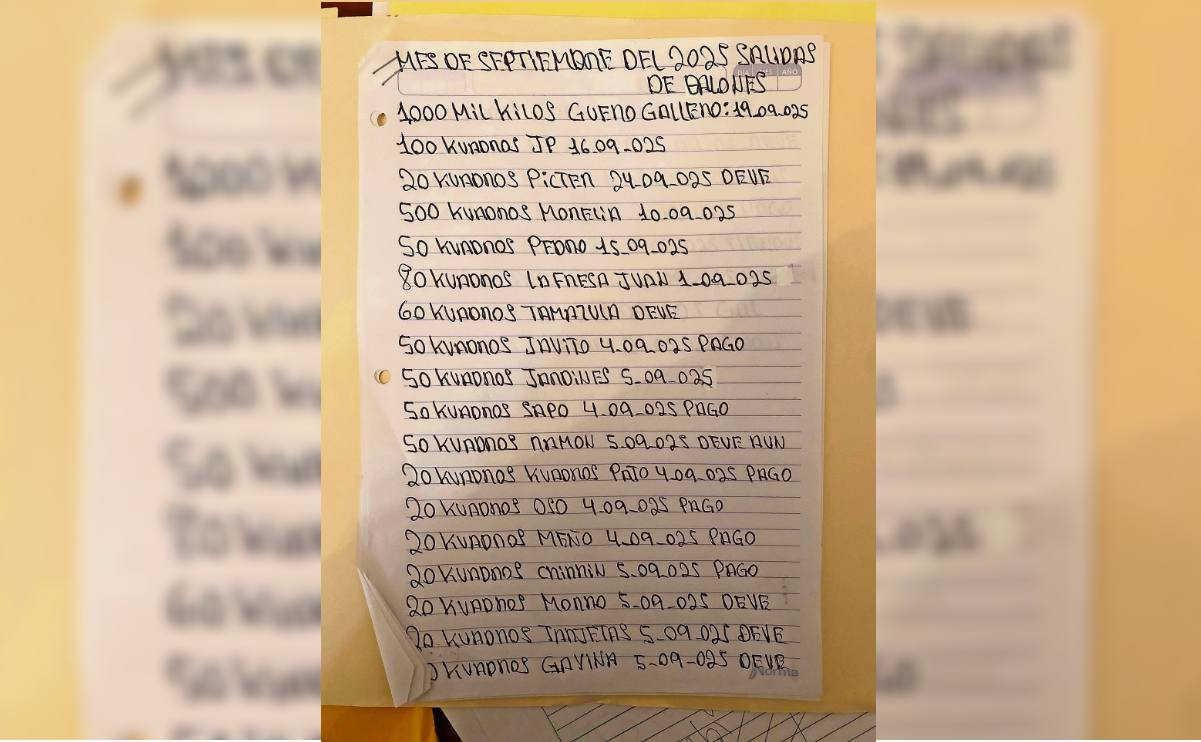 MES DE SEPTIEMBRE DEL 2025 SALIDAS
DE BALONES
1,000 MIL KILOS GUERO GALLERO: 19_09_025
100 KUADROS JP 16_09_025
20 KUADROS PICTER 24_09_025 DEVE
500 KUADROS MORELIA 10_09_025
50 KUADROS PEDRO 15_09_025
80 KUADROS LA FRESA JUAN 1_09_025
60 KUADROS TAMAZULA DEVE
50 KUADROS JAVITO 4_09_025 PAGO
50 KUADROS JARDINES 5_09_025
50 KUADROS SAPO 4_09_025 PAGO
50 KUADROS RAMON 5_09_025 DEVE AUN
20 KUADROS KUADROS PATO 4_09_025 PAGO
20 KUADROS OSO 4_09_025 PAGO
20 KUADROS MEÑO 4_09_025 PAGO
20 KUADROS CHIRRIN 5_09_025 PAGO
20 KUADROS MORRO 5_09_025 DEVE
20 KUADROS TARJETAS 5_09_025 DEVE
0 KUADROS GAVINA 5_09_025 DEVE
Norma